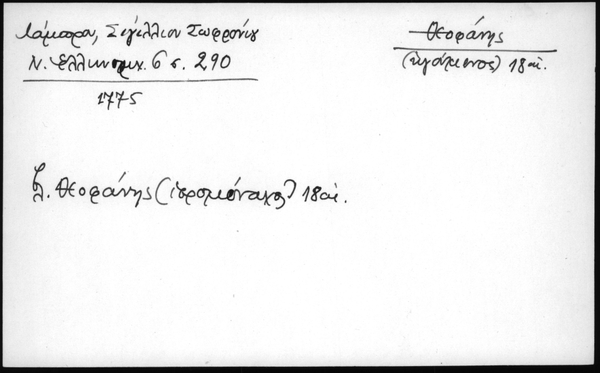 Λάμπρου, Σιγίλλιον Σωφρονίου
Ν. Ελληνομν. 6 σ. 290
1775
Θεοφάνης
(ηγούμενος) 18 αι.
Βλ. Θεοφάνης (ιερομόναχος) 18 αι.